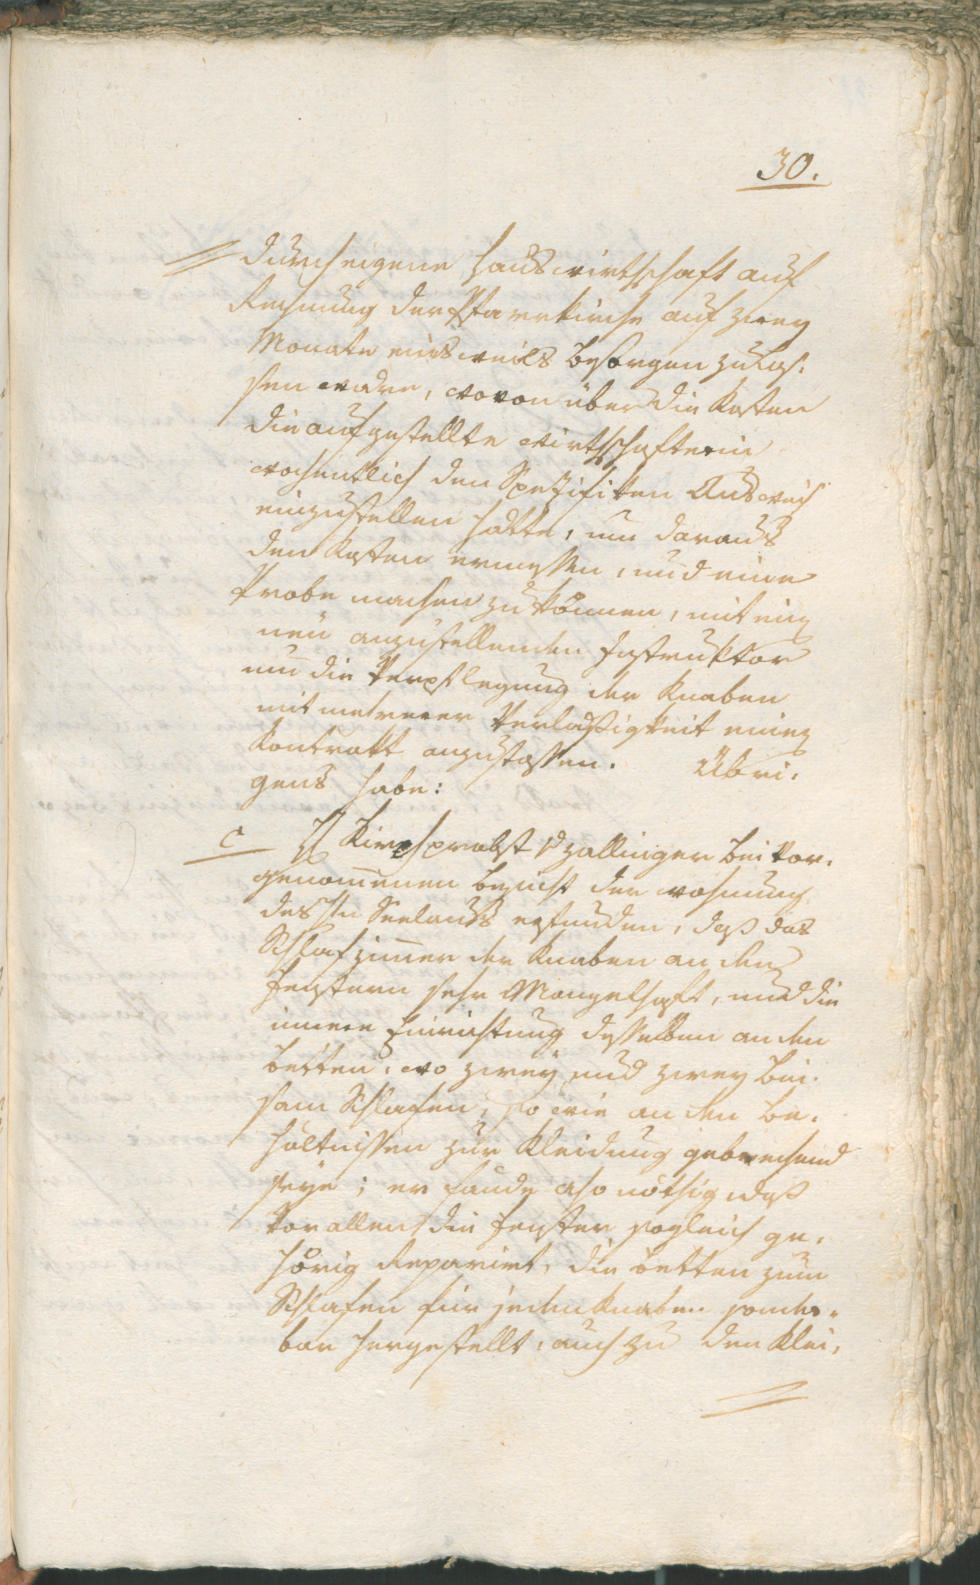 30.
durch eigene Hauswirthschaft auf
Rechnung der Pfarrkirche auf zwey
Monate einsweils besorgen zu las:
sen wäre, wovon über die Kosten
die aufgestellte Wirthschafterin
wochentlich den Spezifiken Ausweis
einzustellen hätte, um daraus
den Kosten ermessen, und eine
Probe machen zu können, mit ein
neü anzustellenden Instruktor
um die Verpflegung der Knaben
mit mehrerer Verlaßigkeit einen
Kontrakt anzustossen. Übri:
gens habe:
c H Kirchprobst v Zallinger bei vor:
genommenen besicht der wohnung
des Hn Seelaus erfunden, daß das
Schlafzimmer der Knaben an den
Fenstern sehr Mangelhaft, und die
innere Einrichtung desselben an den
betten, wo zwey und zwey bei:
sam Schlafen, so wie an den Be:
hältnissen zur Kleidung gebrechend
seye; er fande also nöthig daß
vor allem die Fenster sogleich ge:
hörig Reparirt, die betten zum
Schlafen für jeden Knaben sonder:
bar hergestellt, auch zu den Klei: